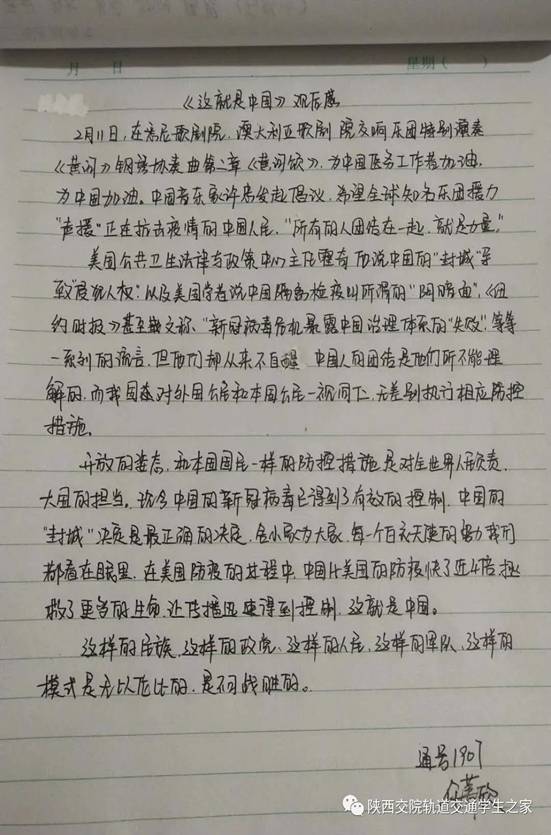 月 日 星期( )
《这就是中国》观后感
2月11日,在悉尼歌剧院,澳大利亚歌剧院交响乐团特别演奏
《黄河》钢琴协奏曲第二章《黄河颂》,为中国医务工作者加油,
为中国加油。中国音乐家许忠发起倡议,希望全球知名乐团接力
"声援"正在抗击疫情的中国人民,"所有的人团结在一起,就是力量。"
美国公共卫生法律与政策中心主任霍奇 说中国的"封城"导
致"侵犯人权";以及美国学者说中国隔离检疫叫所谓的 《纽
约时报》甚至撰文称,"新冠病毒危机暴露中国治理体系的"失败",等等
一系列的谎言,但他们却从来不自醒 中国人的团结是他们所不能理
解的,而我国在对外国公民和本国公民一视同仁,无差别执行相应防控
措施。
开放的姿态,和本国国民一样的防控措施是对全世界人民负责,
大国的担当。现今中国的新冠病毒已得到了有效的控制,中国的
"封城"决定是最正确的决定,舍小家为大家,每一个白衣天使的努力我们
都看在眼里,在美国防疫的进程中,中国比美国的防疫快了近4倍,拯
救了更多的生命,让传播迅速得到控制,这就是中国。
这样的民族,这样的政党、这样的人民,这样的军队,这样的
模式是无以伦比的,是不可战胜的。
通号1907
陕西交院轨道交通学生之家